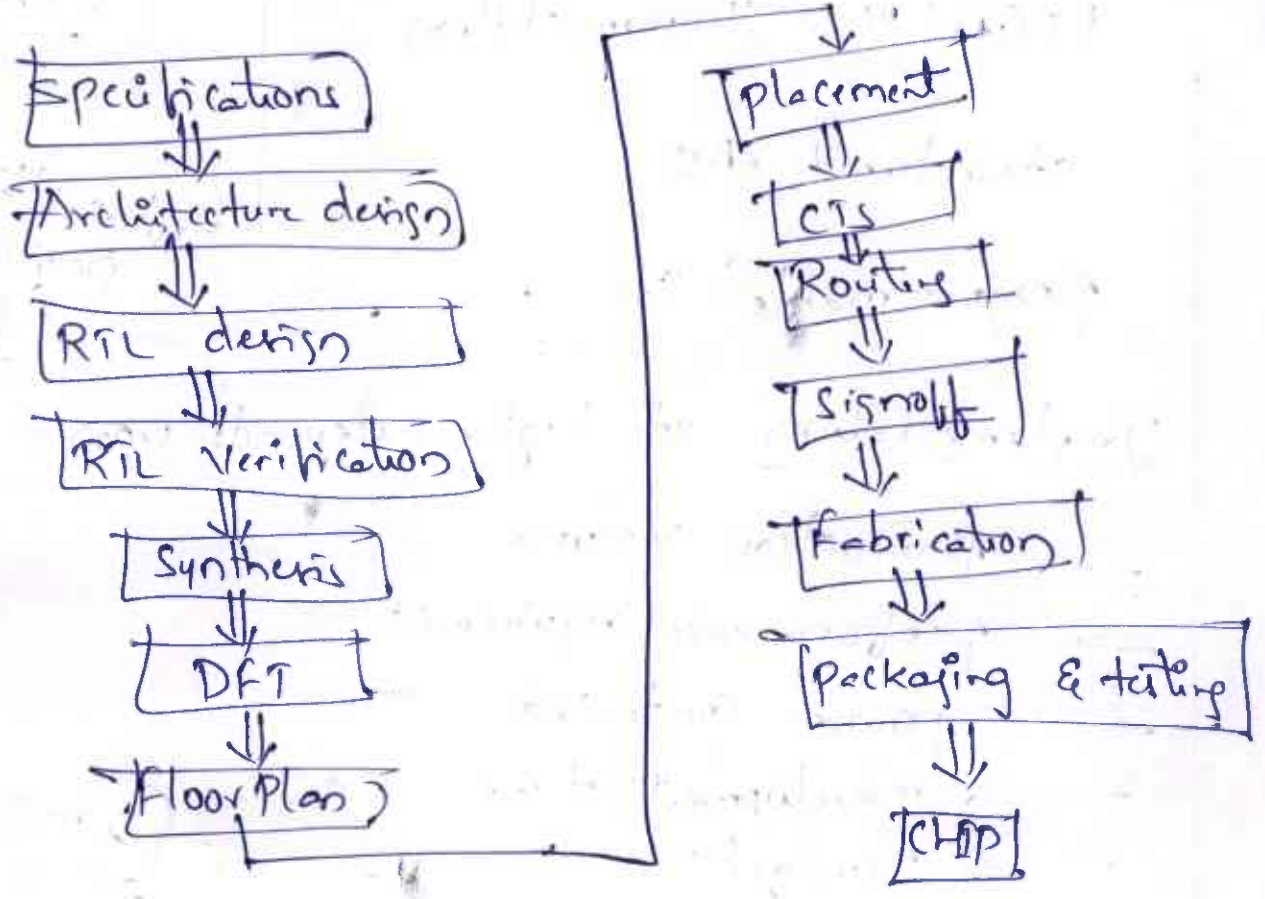 Specifications
Architecture design
RTL design
RTL Verification
Synthesis
DFT
Floor Plan
Placement
CTS
Routing
Signoff
Fabrication
Packaging & testing
CHIP